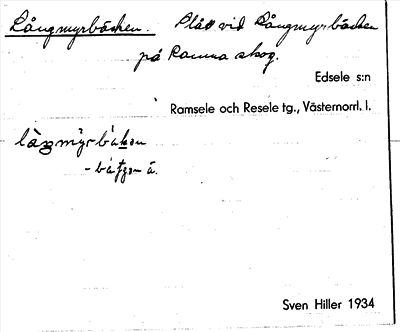 Långmyrbäcken. Plåt vid Långmyrbäcken
på Ramna skog.
Edsele s:n
Ramsele och Resele tg., Västernorrl. l.
Sven Hiller 1934